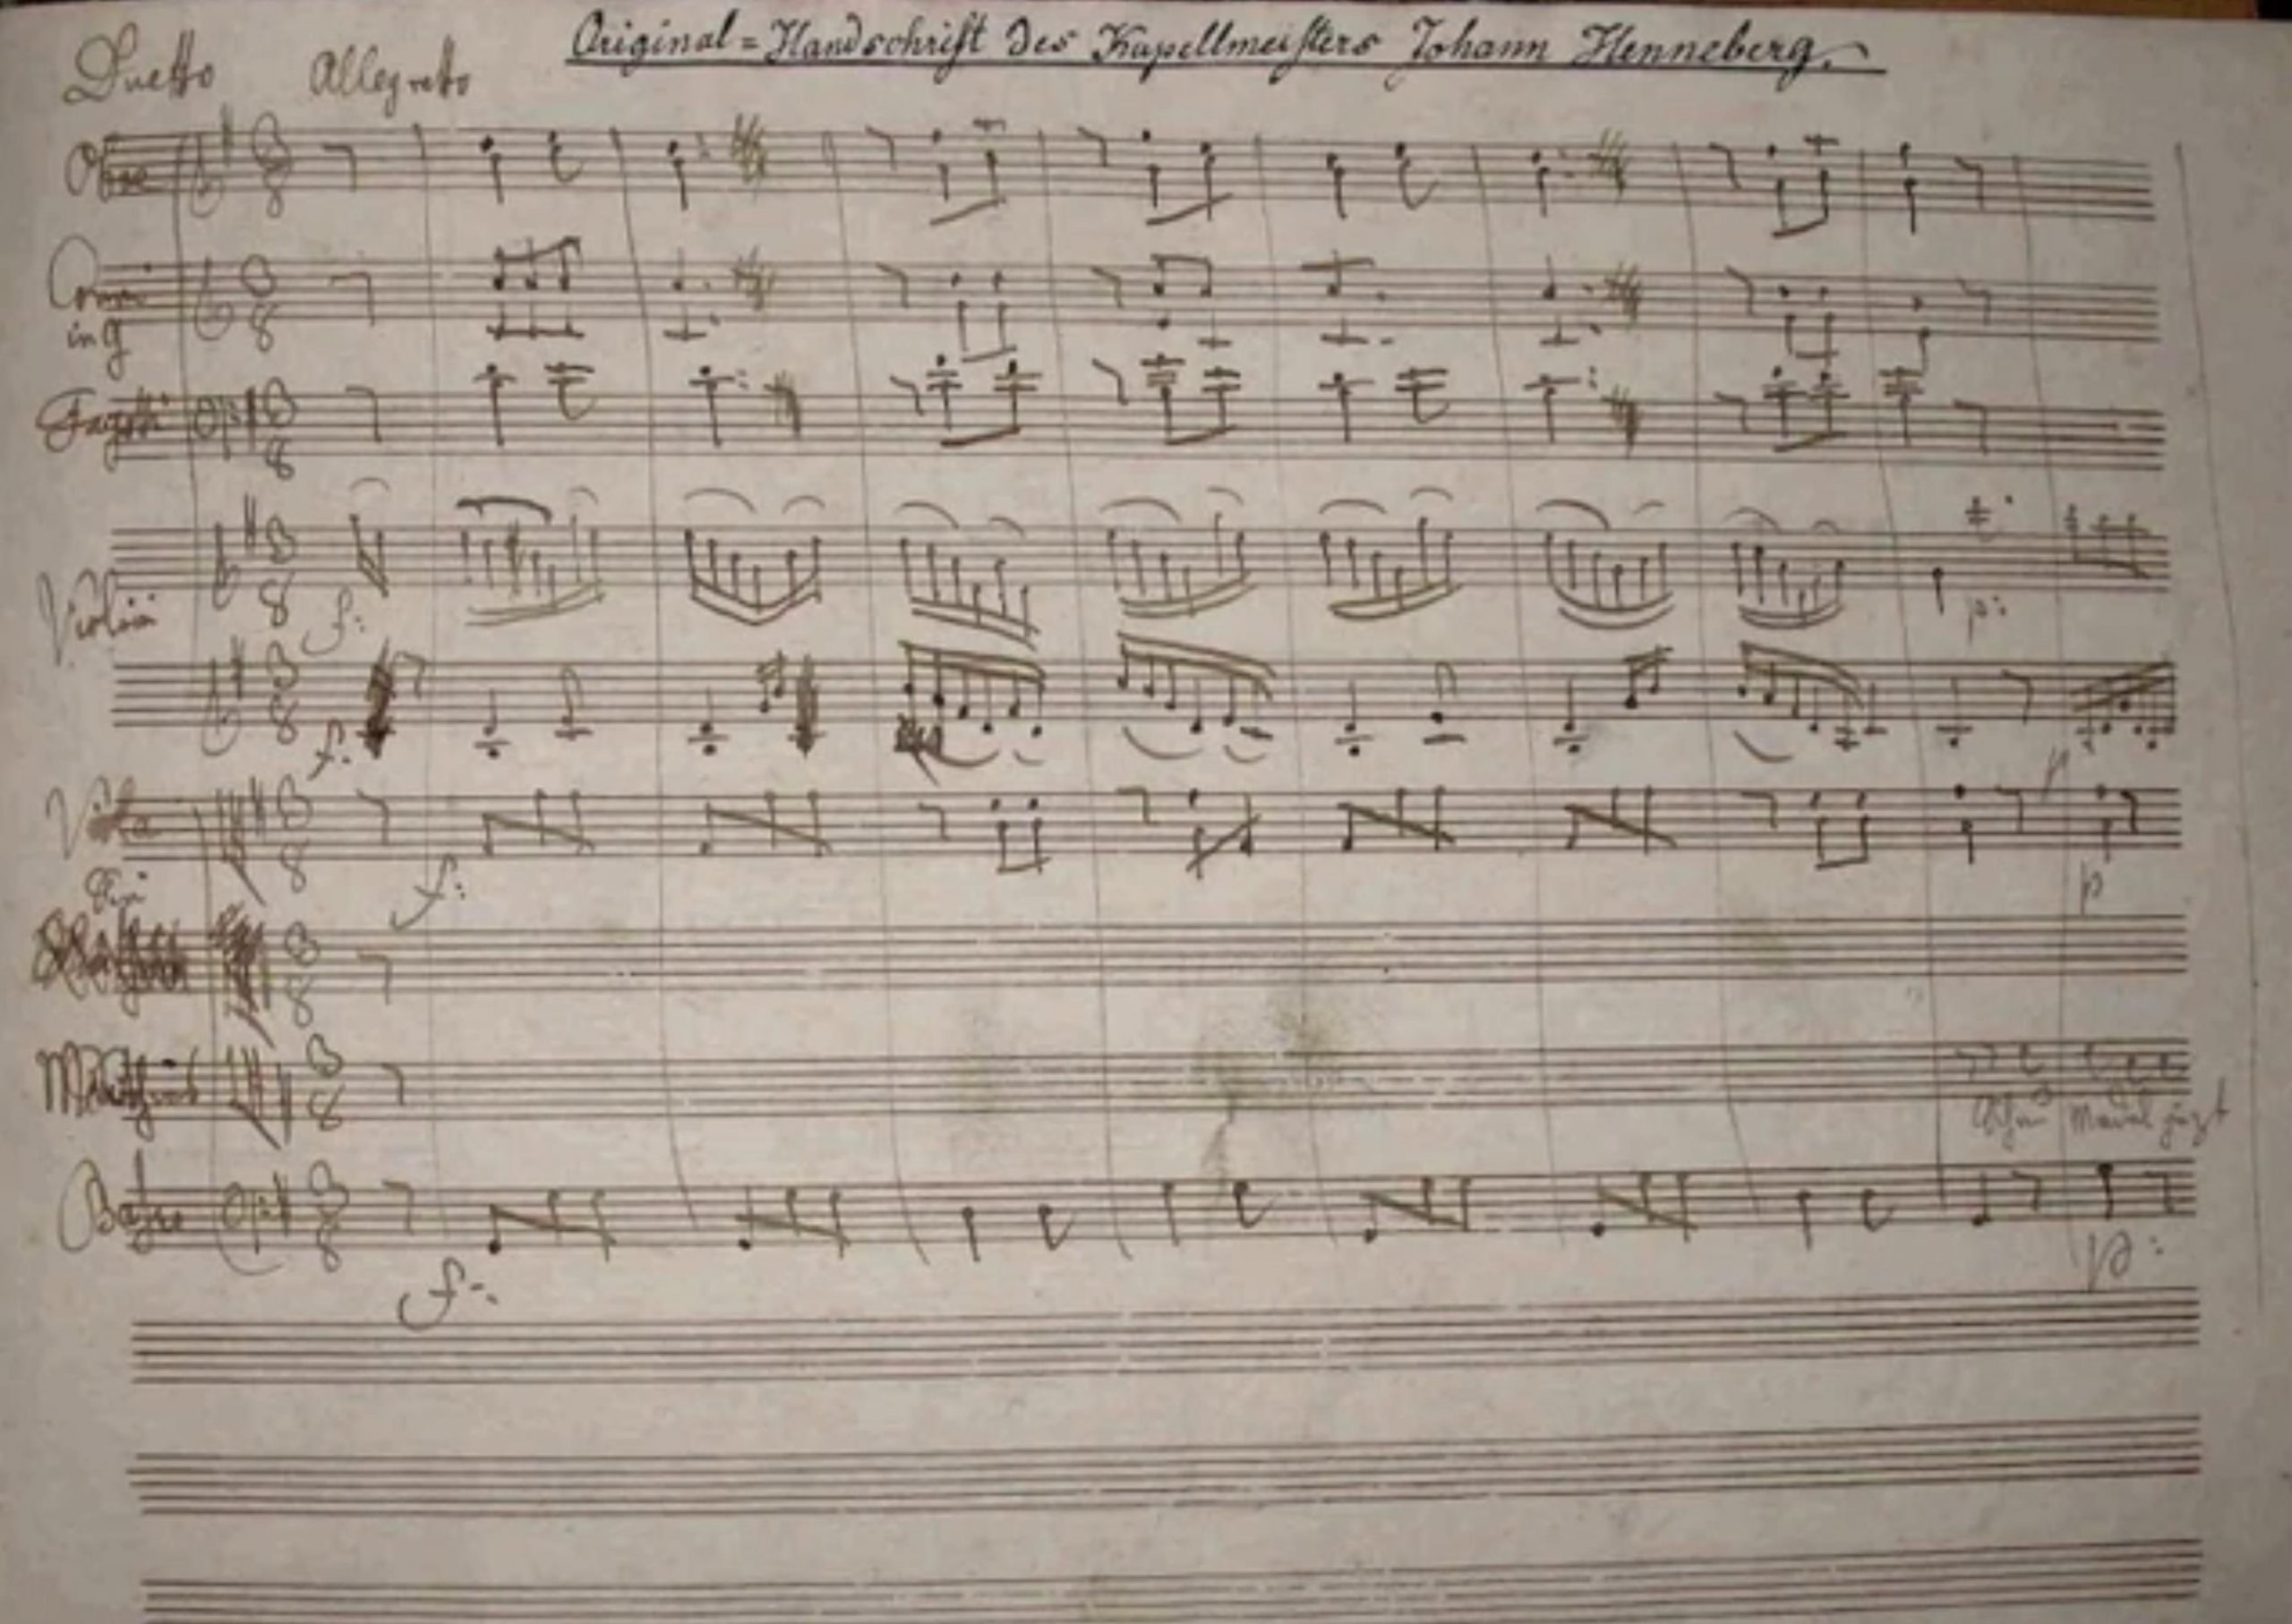 Original=Handschrift des Kapellmeisters Johann Henneberg.
Duetto Allegretto
Oboe
Corni
in g
Fagotti
Violini
f:
f:
p:
p
Viola
f:
p
Basso
f:
p: